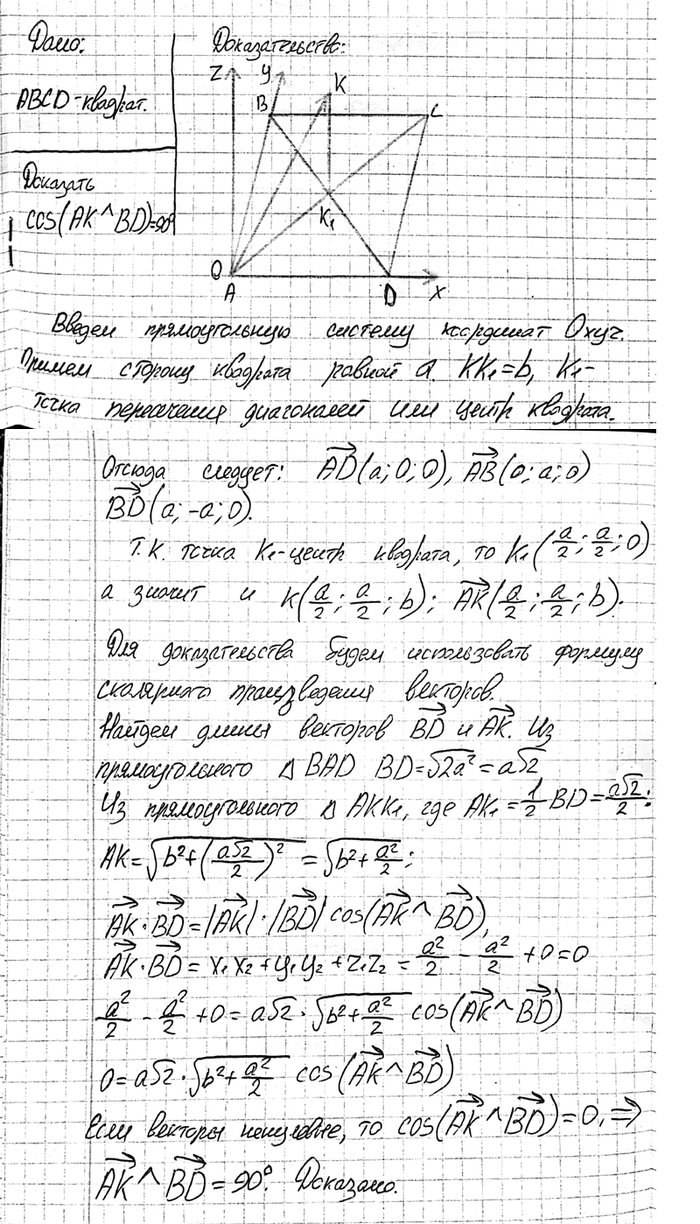 Дано:
ABCD-квадрат.
Доказать
cos(AK^BD)=90°
Доказательство:
Z y K
B C
K₁
O
A D X
Введем прямоугольную систему координат Oxyz.
Примем сторону квадрата равной a. KK₁=b, K₁-
точка пересечения диагоналей или центр квадрата.
Отсюда следует: AD→(a;0;0), AB→(0;a;0)
BD→(a;-a;0).
Т.к. точка K₁-центр квадрата, то K₁(a/2; a/2; 0)
а значит и K(a/2; a/2; b); AK→(a/2; a/2; b).
Для доказательства будем использовать формулу
скалярного произведения векторов.
Найдем длины векторов BD→ и AK→. Из
прямоугольного Δ BAD BD=√2a²=a√2
Из прямоугольного Δ AKK₁, где AK₁=1/2 BD=a√2/2:
AK=√(b²+(a√2/2)²)=√(b²+a²/2);
AK→·BD→=|AK→|·|BD→| cos(AK→^BD→),
AK→·BD→=x₁x₂+y₁y₂+z₁z₂=a²/2-a²/2+0=0
a²/2-a²/2+0=a√2·√(b²+a²/2) cos(AK→^BD→)
0=a√2·√(b²+a²/2) cos(AK→^BD→)
Если векторы ненулевые, то cos(AK→^BD→)=0,⇒
AK→^BD→=90°. Доказано.